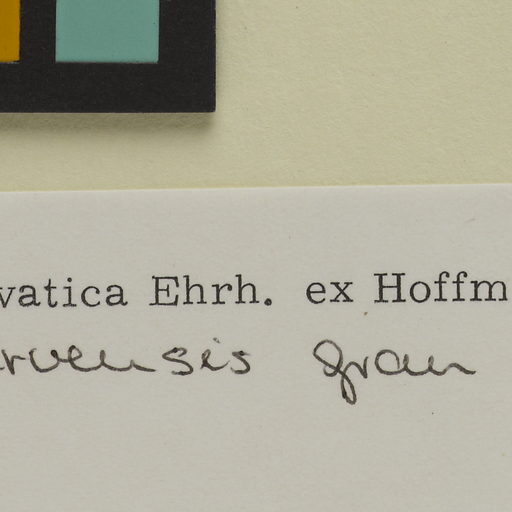 vatica Ehrh. ex Hoffm
rvensis gran